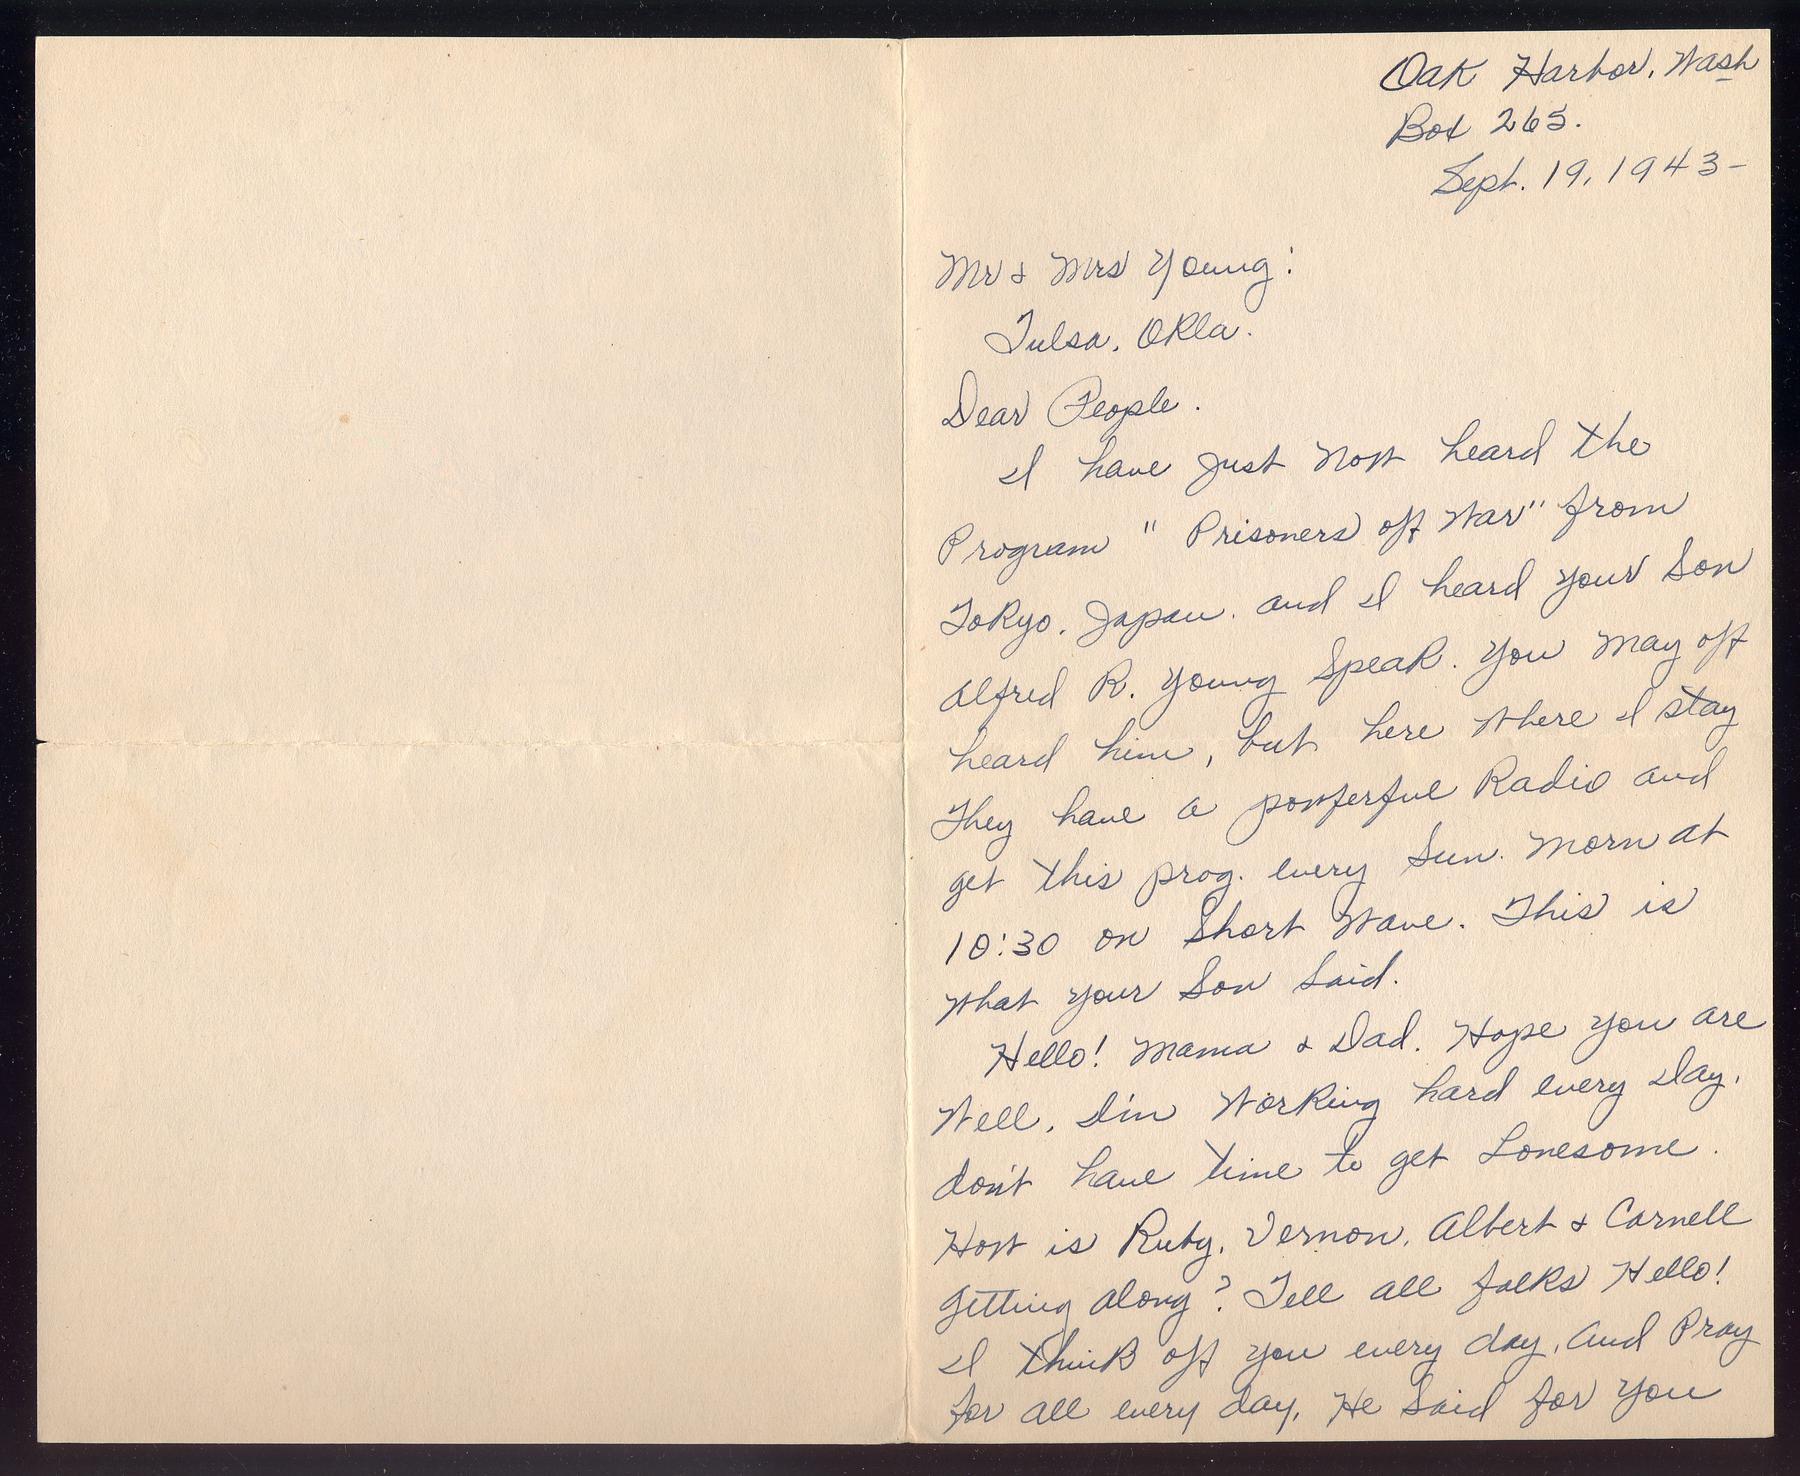 Oak Harbor, Wash
Box 265.
Sept. 19, 1943-
Mr & Mrs Young:
Tulsa, Okla.
Dear People.
I have just now heard the
Program " Prisoners off War" from
Tokyo, Japan. and I heard your Son
Alfred R. Young Speak. You may off
heard him, but here where I stay
They have a powferful Radio and
get this prog. every Sun. Morn at
10:30 on Short Wave. This is
what your Son Said.
Hello! Mama & Dad. Hope you are
Well, I'm Working hard every Day,
don't have time to get Lonesome.
How is Ruby, Vernon, Albert & Cornell
getting along? Tell all folks Hello!
I think off you every day, and Pray
for all every day, He Said for you